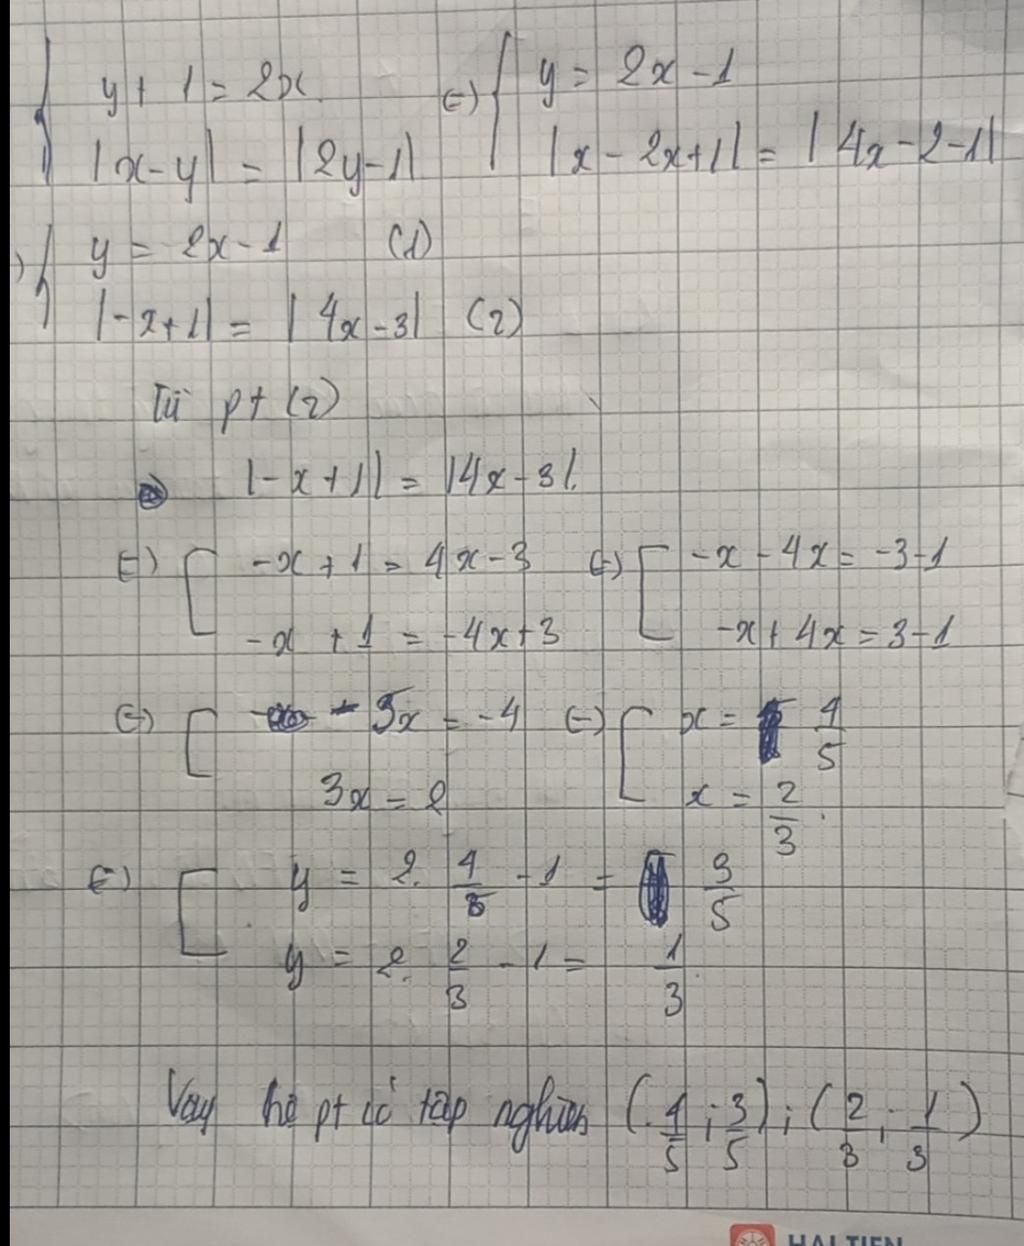 { y + 1 = 2x (=) { y = 2x - 1
|x - y| = |2y - 1| |x - 2x + 1| = |4x - 2 - 1|
) { y = 2x - 1 (1)
|-x + 1| = |4x - 3| (2)
Từ pt (2)
|-x + 1| = |4x - 3|.
(=) [ -x + 1 = 4x - 3 (=) [ -x - 4x = -3 - 1
-x + 1 = -4x + 3 -x + 4x = 3 - 1
(=) [ - 5x = -4 (=) [ x = 4/5
3x = 2 x = 2/3.
(=) [ y = 2. 4/5 - 1 = 3/5
y = 2. 2/3 - 1 = 1/3
Vậy hệ pt có tập nghiệm (4/5 ; 3/5) ; (2/3 ; 1/3)
HẢI TIẾN